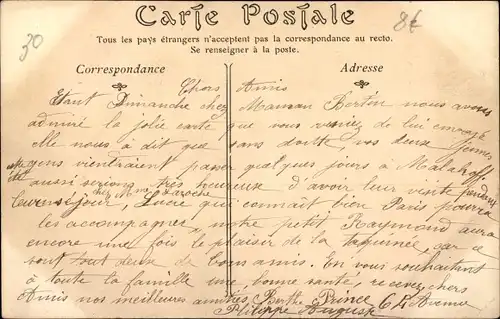 30
8€
Carte Postale
Tous les pays étrangers n'acceptent pas la correspondance au recto.
Se renseigner à la poste.
Correspondance
Adresse
Chers Amis
Etant Dimanche chez Maman Bertin nous avons
admiré la jolie carte que vous veniez de lui envoyé
elle nous a dit que sans doutte, vos deux jeunes
gens viendraient passer quelques jours à Malakoff
aussi serions très heureux d'avoir leur visite pendant
leur séjour, Lucie qui connaît bien Paris pourra
les accompagner, notre petit Raymond aura
encore une fois le plaisir de la taquinée, car ce
sont tout deux de bons amis. En vous souhaitant
à toute la famille une bonne santé, recevez chers
Amis nos meilleures amitiés, Berthe Prince
Philippe Auguste